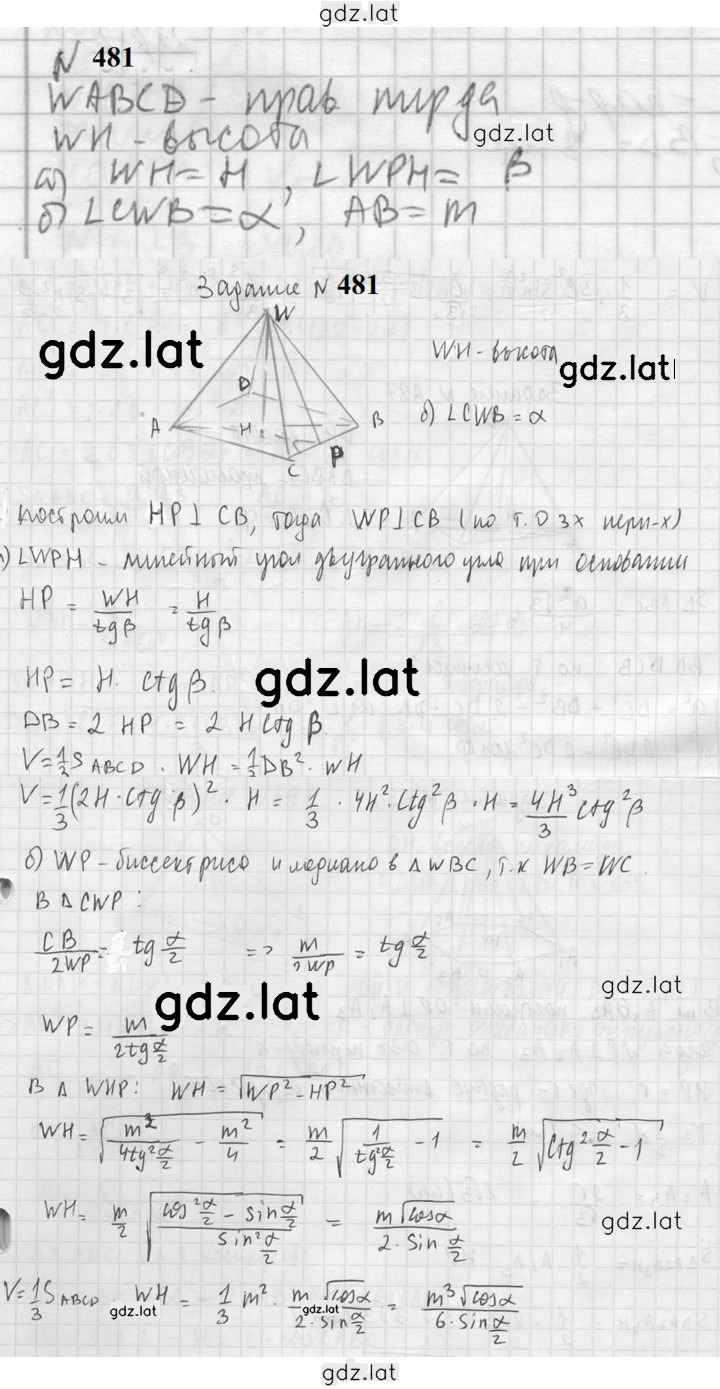 gdz.lat
N 481
WABCD - прав. пир-да
WH - высота
gdz.lat
а) WH = H, ∠WPH = β
б) ∠CWB = α, AB = m
Задание N 481
gdz.lat
W
WH - высота
gdz.lat
D
A
H
B
б) ∠CWB = α
C
P
Построим HP ⊥ CB, тогда WP ⊥ CB (по т. О 3х перп-х)
а) ∠WPH - линейный угол двугранного угла при основании
HP = WH/tgβ = H/tgβ
HP = H · ctgβ.
gdz.lat
DB = 2 HP = 2 H ctgβ.
V = 1/3 S ABCD · WH = 1/3 DB² · WH
V = 1/3 (2H · ctgβ)² · H = 1/3 · 4H² · ctg²β · H = 4H³/3 ctg²β
б) WP - биссектриса и медиана в △WBC, т.к WB = WC.
В △CWP:
CB/2WP = tg α/2 => m/2WP = tg α/2
gdz.lat
gdz.lat
WP = m/(2tg α/2)
В △ WHP: WH = √(WP² - HP²)
WH = √(m²/(4tg² α/2) - m²/4) = m/2 √(1/(tg² α/2) - 1) = m/2 √(ctg² α/2 - 1)
WH = m/2 √((cos² α/2 - sin α/2)/(sin² α/2)) = m√cosα/(2 · sin α/2)
gdz.lat
V = 1/3 S ABCD · WH = 1/3 m² · m√cosα/(2 · sin α/2) = m³√cosα/(6 · sin α/2)
gdz.lat
gdz.lat
gdz.lat